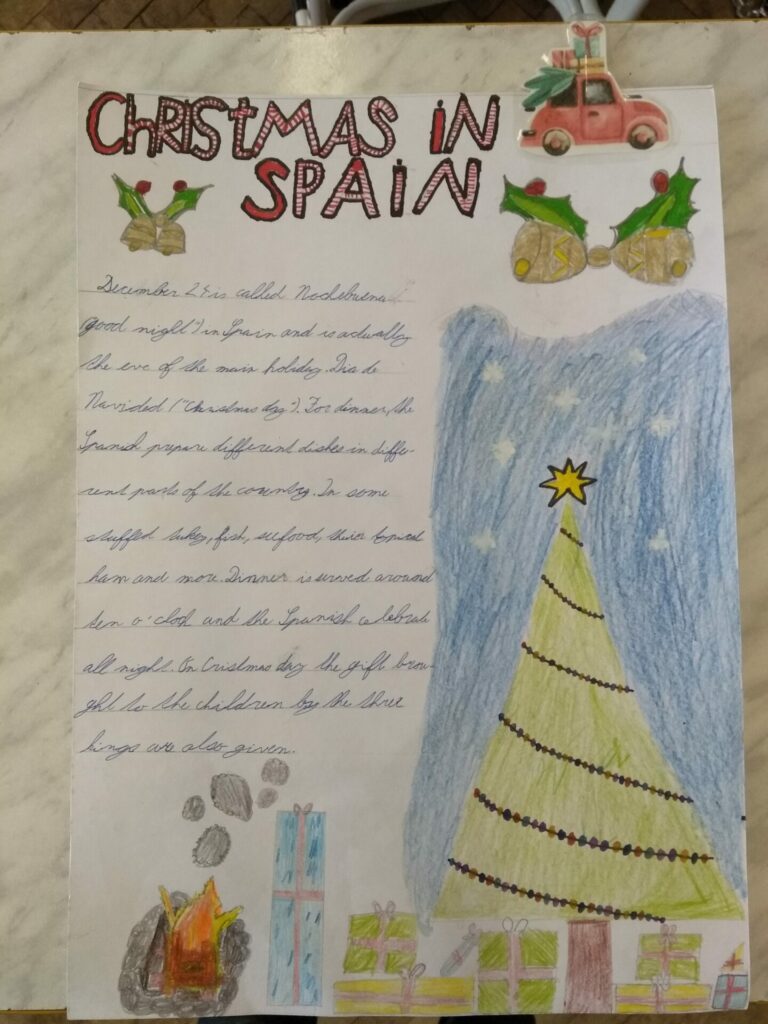 CHRiSTMAS iN
SPAiN
December 24 is called Nochebuena
good night") in Spain and is actually
the eve of the main holiday. Dia de
Navided ("Christmas day"). For dinner, the
Spanish prepare different dishes in diffe-
rent parts of the country. In some
stuffed tukey, fish, seafood, their
ham and more. Dinner is served around
ten o'clock and the Spanish celebrate
all night. On Cristmas day the gift brou-
ght to the children by the three
kings are also given.